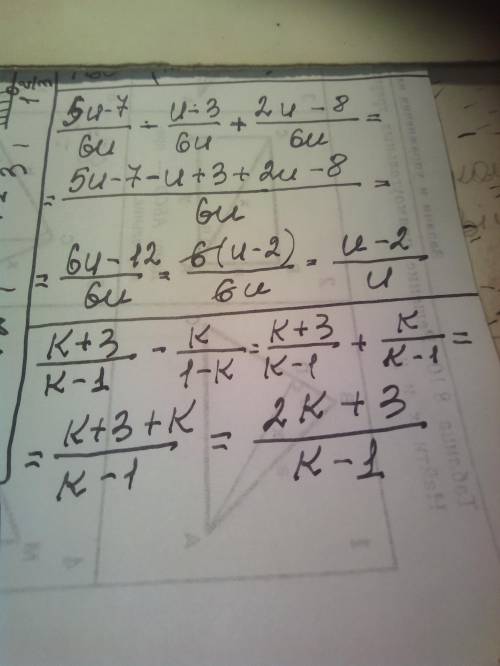 5u-7/6u - u-3/6u + 2u-8/6u =
= 5u-7-u+3+2u-8/6u =
= 6u-12/6u = 6(u-2)/6u = u-2/u
K+3/K-1 - K/1-K = K+3/K-1 + K/K-1 =
= K+3+K/K-1 = 2K+3/K-1